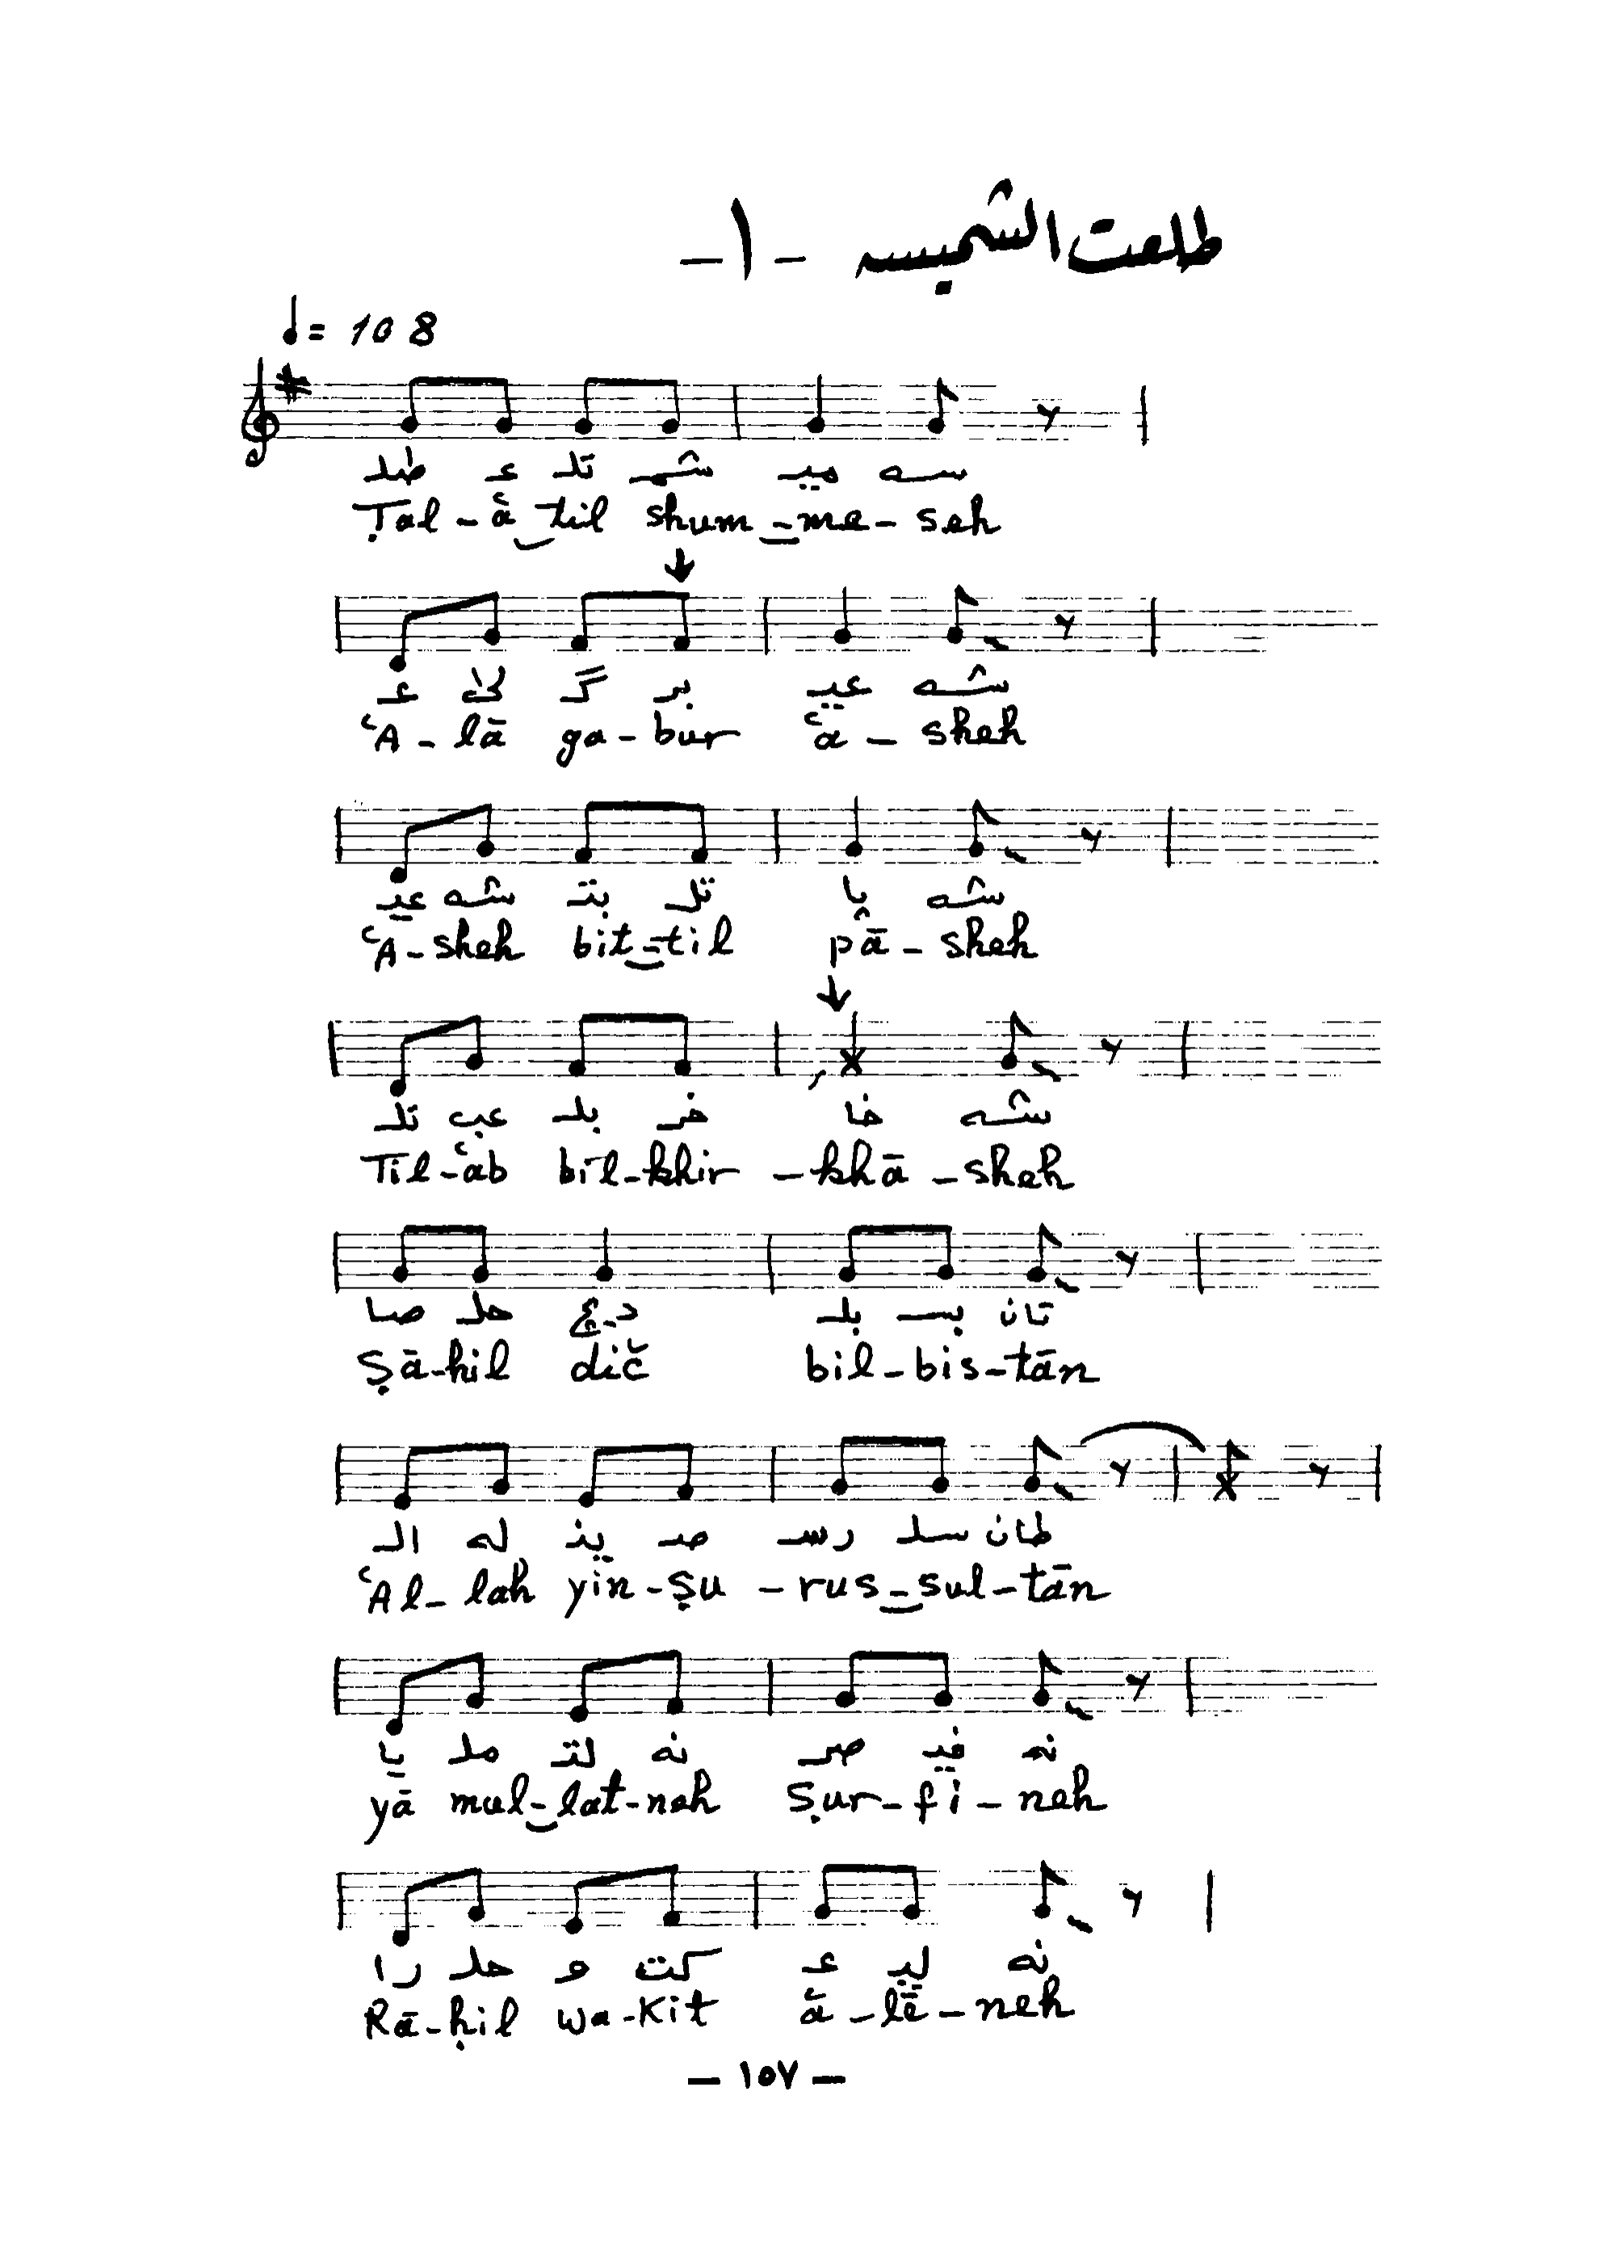 طلعت الشميسه -١-
♩= 108
طلـ عـ تلـ شمـ ميـ سه
Ṭal-ʿa-til shum-me-seh
عـ لىٰ گـ بر عيـ شه
ʿA-lā ga-bur ʿa-sheh
عيـ شه بتـ تلـ با شه
ʿA-sheh bit-til pā-sheh
تلـ عب بلـ خر خا شه
Til-ʿab bil-khir-khā-sheh
صا حلـ دچ بلـ بسـ تان
Ṣā-hil dič bil-bis-tān
الـ له ينـ صـ رسـ سلـ طان
ʿAl-lah yin-ṣu-rus-sul-tān
يا ملـ لتـ نه صر فيـ نه
yā mul-lat-neh Ṣur-fi-neh
را حلـ و كت عـ ليـ نه
Rā-ḥil wa-Kit ʿa-lē-neh
- ١٥٧ -